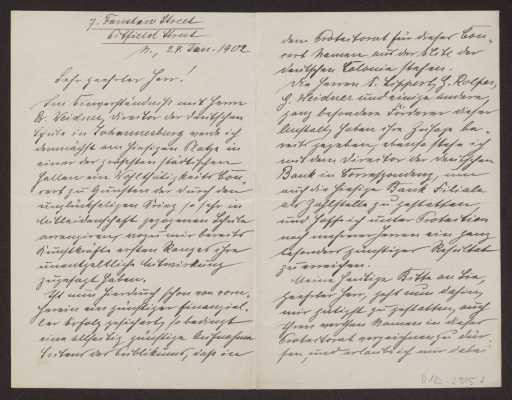 7. Fanshaw Street
Pitfield Street
N., 27. Jan. 1902
Sehr geehrter Herr!
Im Einverständniß mit Herrn
G. Weidner, Director der deutschen
Schule in Johannesburg werde ich
demnächst am hiesigen Platze in
einer der größten städtischen
Hallen ein Wohlthätigkeits Con-
cert zu Gunsten der durch den
unglückseligen Krieg so sehr in
Mitleidenschaft gezogenen Schule
arrangiren, wozu mir bereits
Kunstkräfte ersten Ranges ihre
unentgeltliche Mitwirkung
zugesagt haben.
Ist nun hierdurch schon von vorn-
herein ein günstiger finanziel-
ler Erfolg gesichert, so bedingt
eine allseitig günstige Aufnahme
Seitens des Publikums, daß in
dem Protectorat für dieses Con-
cert Namen aus der Elite der
deutschen Colonie stehen.
Die Herren N. Lippert, H. Rolfes,
G. Weidner und einige andere,
ganz besondere Förderer dieser
Anstalt, haben ihre Zusage be-
reits gegeben, ebenso stehe ich
mit dem Director der deutschen
Bank in Correspondenz, um
auch die hiesige Bank Filiale
als Zahlstelle zu gestatten,
und hoffe ich unter Protection
noch mehrerer Herren ein ganz
besonders günstiges Resultat
zu erreichen.
Meine heutige Bitte an Sie,
geehrter Herr, geht nun dahin,
mir gütigst zu gestatten, auch
Ihren werthen Namen in dieses
Protectorat verzeichnen zu dür-
fen, und erlaube ich mir dabei